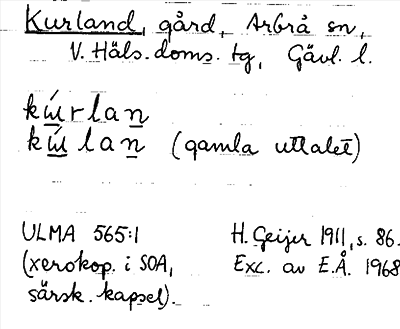 Kurland, gård, Arbrå sn,
V. Häls. doms. tg, Gävl. l.
kúrlan
kú lan (gamla uttalet)
ULMA 565:1 H. Geijer 1911, s. 86.
(xerokop. i SOA, Exc. av E.Å. 1968
särsk. kapsel).